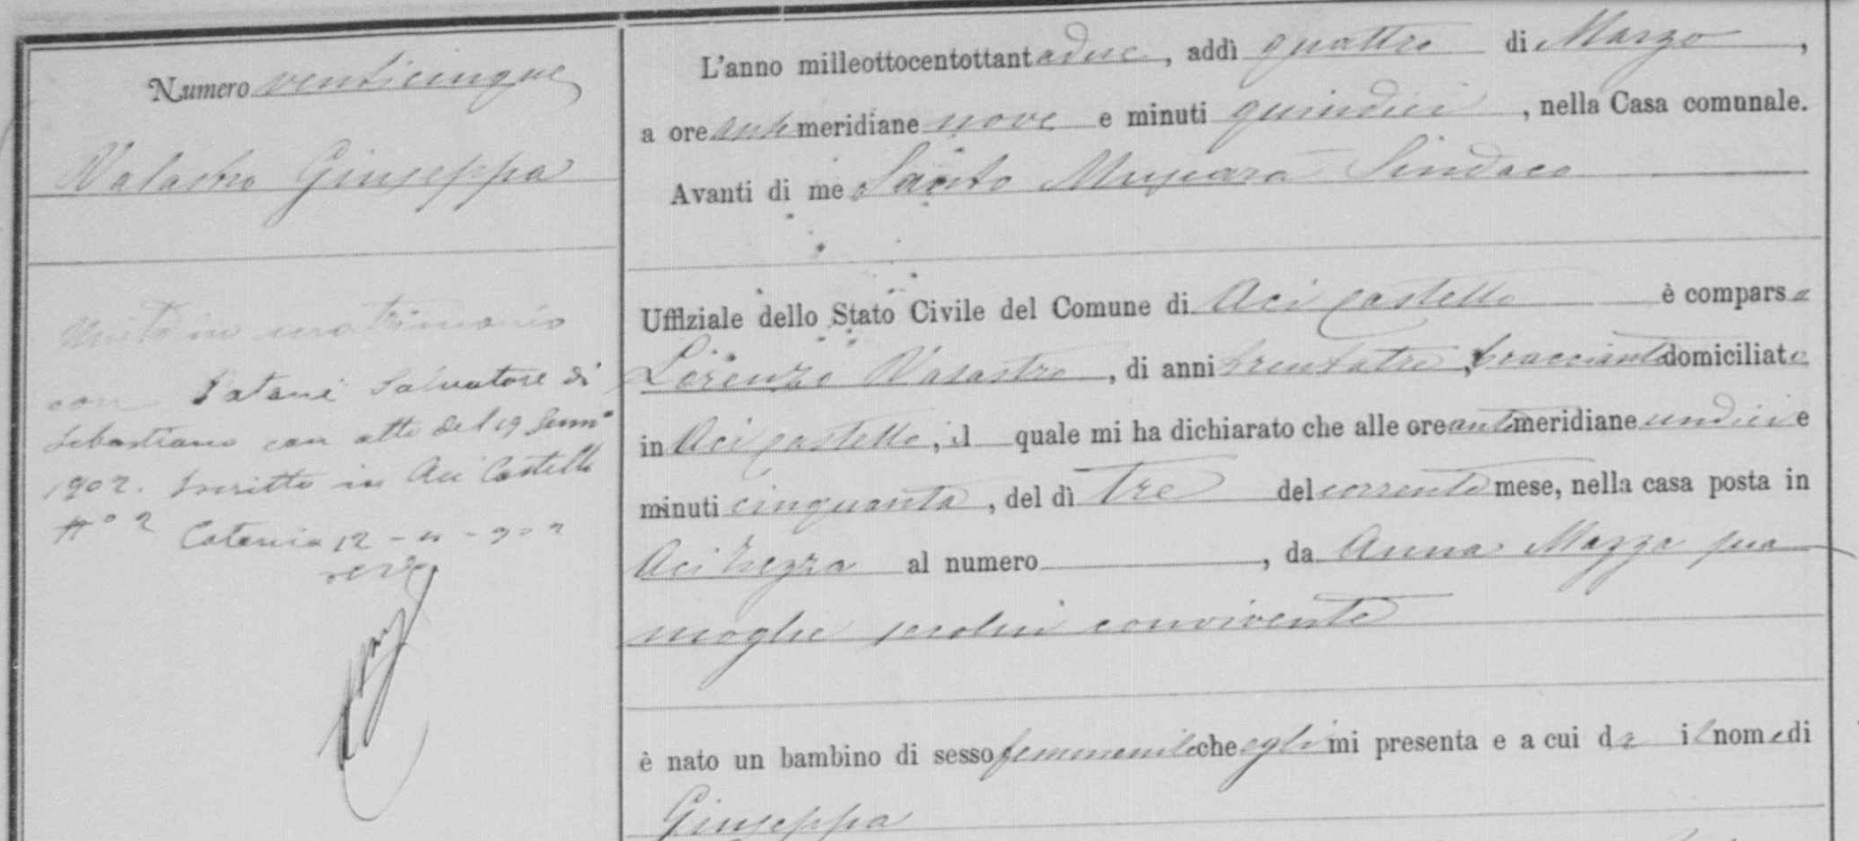 Numero venticinque
Valastro Giuseppa
Unita in matrimonio
con Patanè Salvatore di
Sebastiano con atto del 19
1902. Inscritto in Aci Castello
N° 2 Catania 12 - 902
L'anno milleottocentottantadue, addì quattro di Marzo,
a ore antemeridiane nove e minuti quindici, nella Casa comunale.
Avanti di me Santo Sindaco
Uffiziale dello Stato Civile del Comune di Aci castello è comparso
Lorenzo Valastro, di anni trentatre, bracciante domiciliato
in Aci castello, il quale mi ha dichiarato che alle ore antmeridiane undici e
minuti cinquanta, del dì tre del corrente mese, nella casa posta in
Aci trezza al numero , da Anna Mazza sua
moglie secolui convivente
è nato un bambino di sesso femmenile che egli mi presenta e a cui da il nome di
Giuseppa